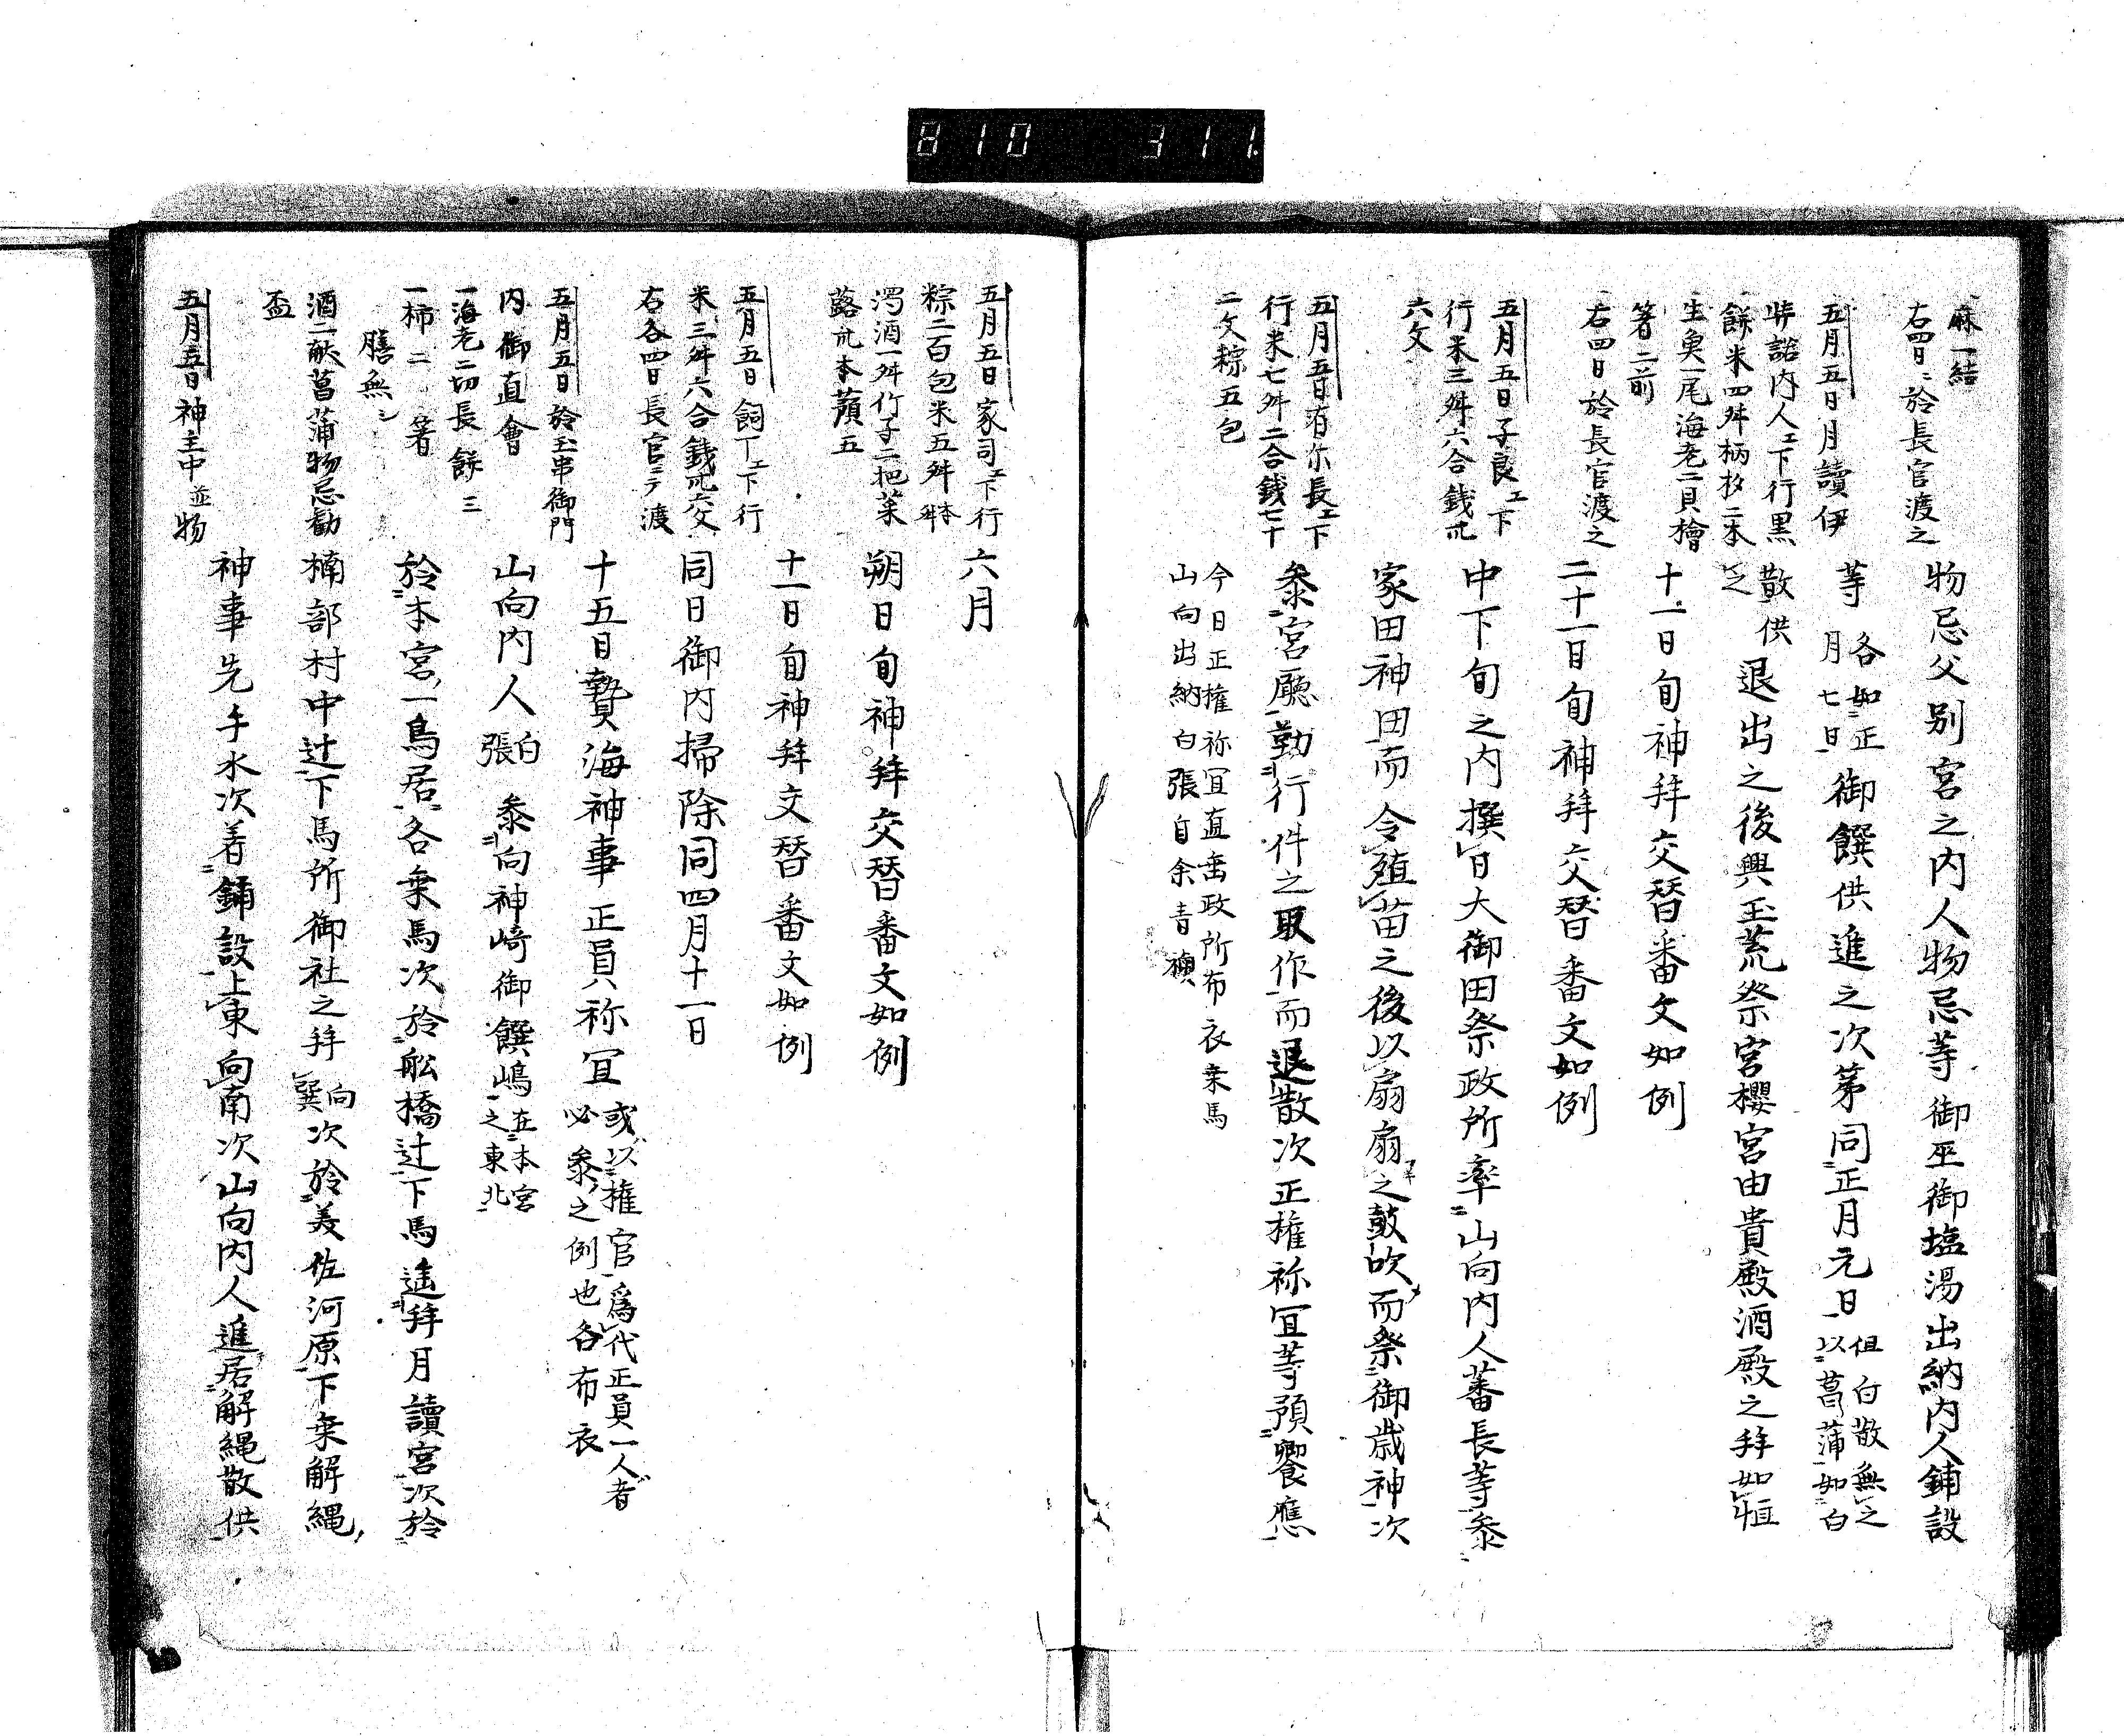 810 311
麻一結
右四日ニ於長官渡之
五月五日月讀伊
弉諾内人エ下行黒
餅米四舛柄杉二本
生魚一尾海老二貝檜
箸二前
右四日於長官渡之
五月五日子良エ下
行米三舛六合銭卅
六文
五月五日有尓長エ下
行米七舛二合銭七十
二文粽五包
物忌父別宮之内人物忌等御巫御塩湯出納内人鋪設
等 各如正
月七日 御饌供進之次第同正月元日 但白散無之
以菖蒲如白
散供
之 退出之後興玉荒祭宮櫻宮由貴殿酒殿之拜如恒
十一日旬神拜交替番文如例
二十一日旬神拜交替番文如例
中下旬之内撰日大御田祭政所率山向内人蕃長等參
家田神田而令殖苗之後以扇扇之鼓吹而祭御歳神次
參宮廳勤行件之取作而退散次正權祢冝等預饗應
今日正權祢冝直垂政所布衣乗馬
山向出納白張自余青襖
五月五日家司エ下行
粽二百包米五舛
濁酒一舛竹子二把菜
蕗卅本蘋五
五月五日飼丁エ下行
米三舛六合銭卅六文
右各四日長官ニテ渡
五月五日於玉串御門
内御直會
一海老二切長餅三
一柿二 箸
膳無シ
酒二献菖蒲物忌勧
盃
五月五日神主中並物
六月
朔日旬神拜交替番文如例
十一日旬神拜交替番文如例
同日御内掃除同四月十一日
十五日贄海神事正員祢冝 或以權官為代正員一人者
必參之例也各布衣
山向内人 白
張 參向神崎御饌嶋 在本宮
之東北
於本宮一鳥居各乗馬次於舩橋辻下馬遥拜月讀宮次於
楠部村中辻下馬所御社之拜 向
巽 次於美佐河原下乗解縄
神事先手水次着鋪設上東向南次山向内人進居解縄散供